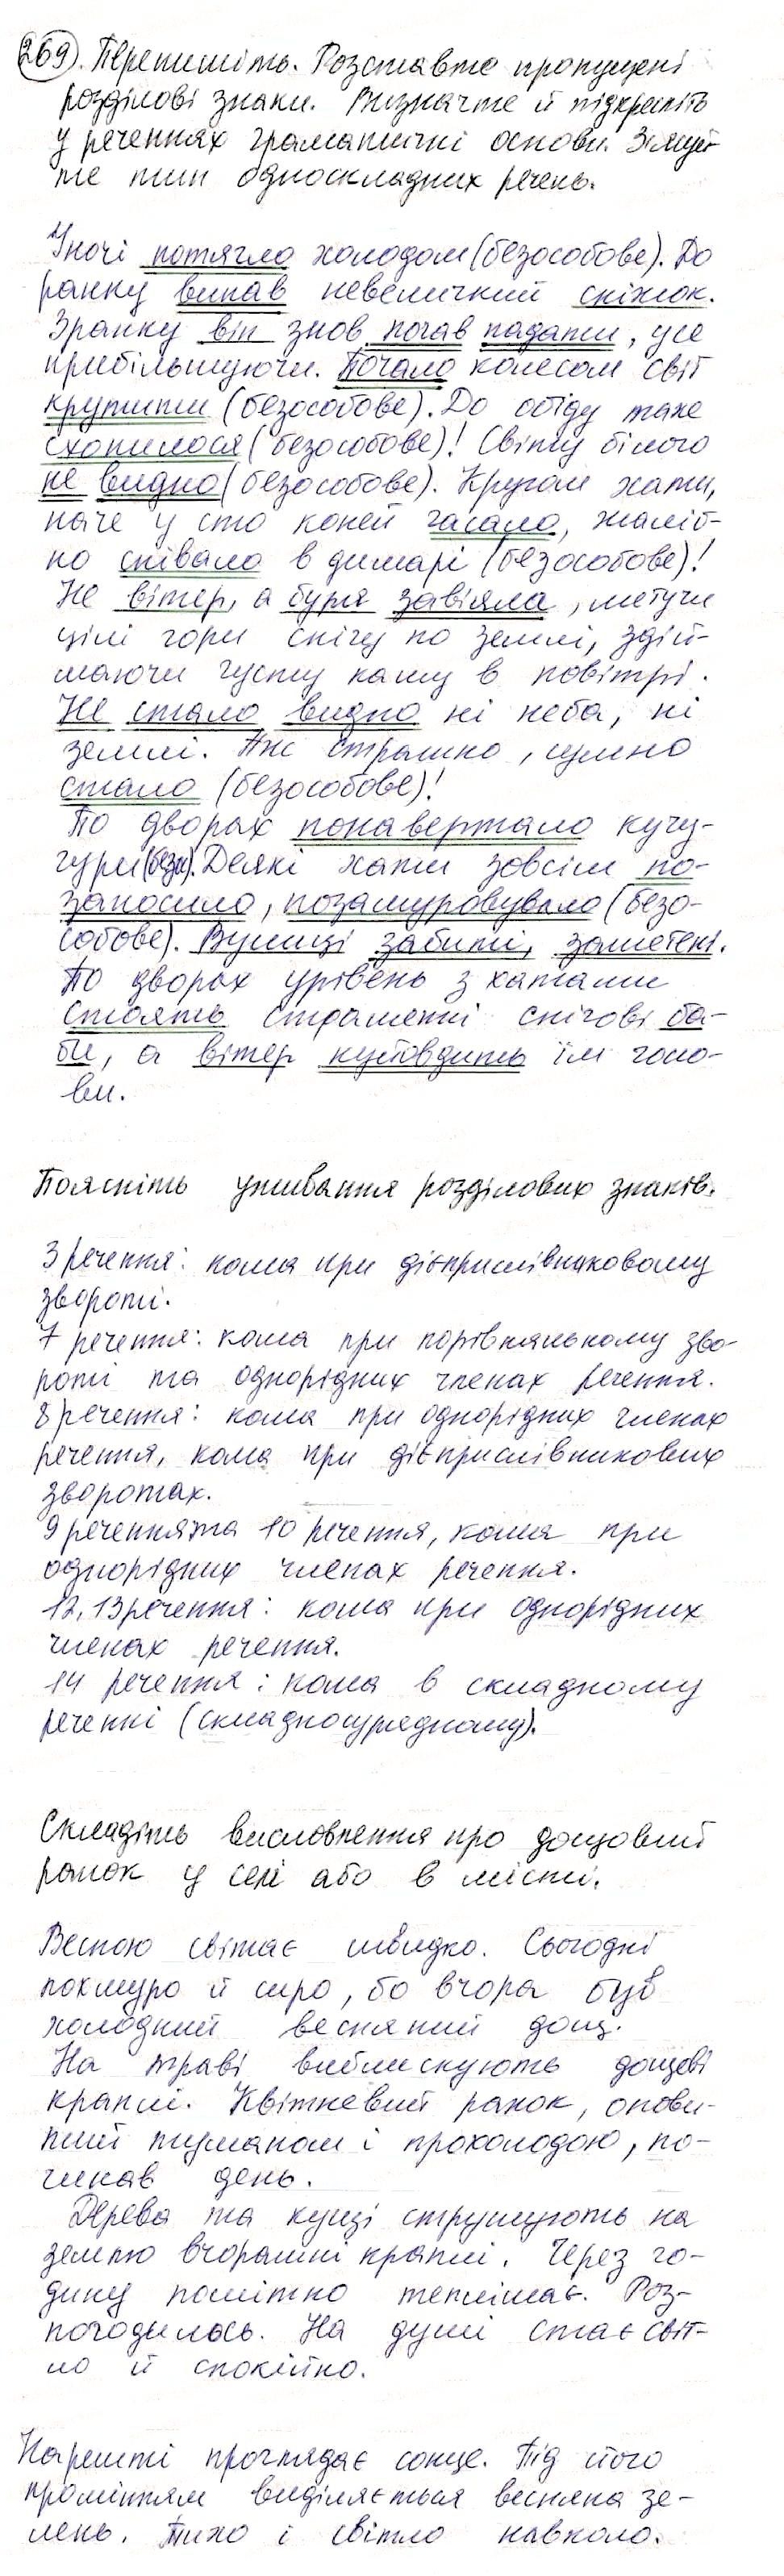 269. Перепишіть. Розставте пропущені
розділові знаки. Визначте й підкресліть
у реченнях граматичні основи. З'ясуй-
те тип односкладних речень.
Уночі потягло холодом (безособове). До
ранку випав невеличкий сніжок.
Зранку він знов почав падати, усе
прибільшуючи. Почало колесом світ
крутити (безособове). До обіду таке
схопилося (безособове)! Світу білого
не видно (безособове). Кругом хати,
наче у сто коней гасало, жаліб-
но співало в димарі (безособове)!
Не вітер, а буря завіяла, метучи
цілі гори снігу по землі, здій-
маючи густу кашу в повітрі.
Не стало видно ні неба, ні
землі. Аж страшно, сумно
стало (безособове)!
По дворах понавертало кучу-
гури (безос). Деякі хати зовсім по-
заносило, позамуровувало (безо-
собове). Вулиці забиті, заметені.
По дворах урівень з хатами
стоять страшенні снігові ба-
би, а вітер куйовдить їм голо-
ви.
Поясніть уживання розділових знаків.
3 речення: кома при дієприслівниковому
звороті.
7 речення: кома при порівняльному зво-
роті та однорідних членах речення.
8 речення: кома при однорідних членах
речення, кома при дієприслівникових
зворотах.
9 речення та 10 речення, кома при
однорідних членах речення.
12, 13 речення: кома при однорідних
членах речення.
14 речення: кома в складному
реченні (складносурядному).
Складіть висловлення про дощовий
ранок у селі або в місті.
Весною світає швидко. Сьогодні
похмуро й сиро, бо вчора був
холодний весняний дощ.
На траві виблискують дощові
краплі. Квітневий ранок, опови-
тий туманом і прохолодою, по-
чинав день.
Дерева та кущі струшують на
землю вчорашні краплі. Через го-
дину помітно теплішає. Роз-
погодилось. На душі стає світ-
ло й спокійно.
Нарешті проглядає сонце. Під його
промінням виділяється весняна зе-
лень. Тихо і світло навколо.